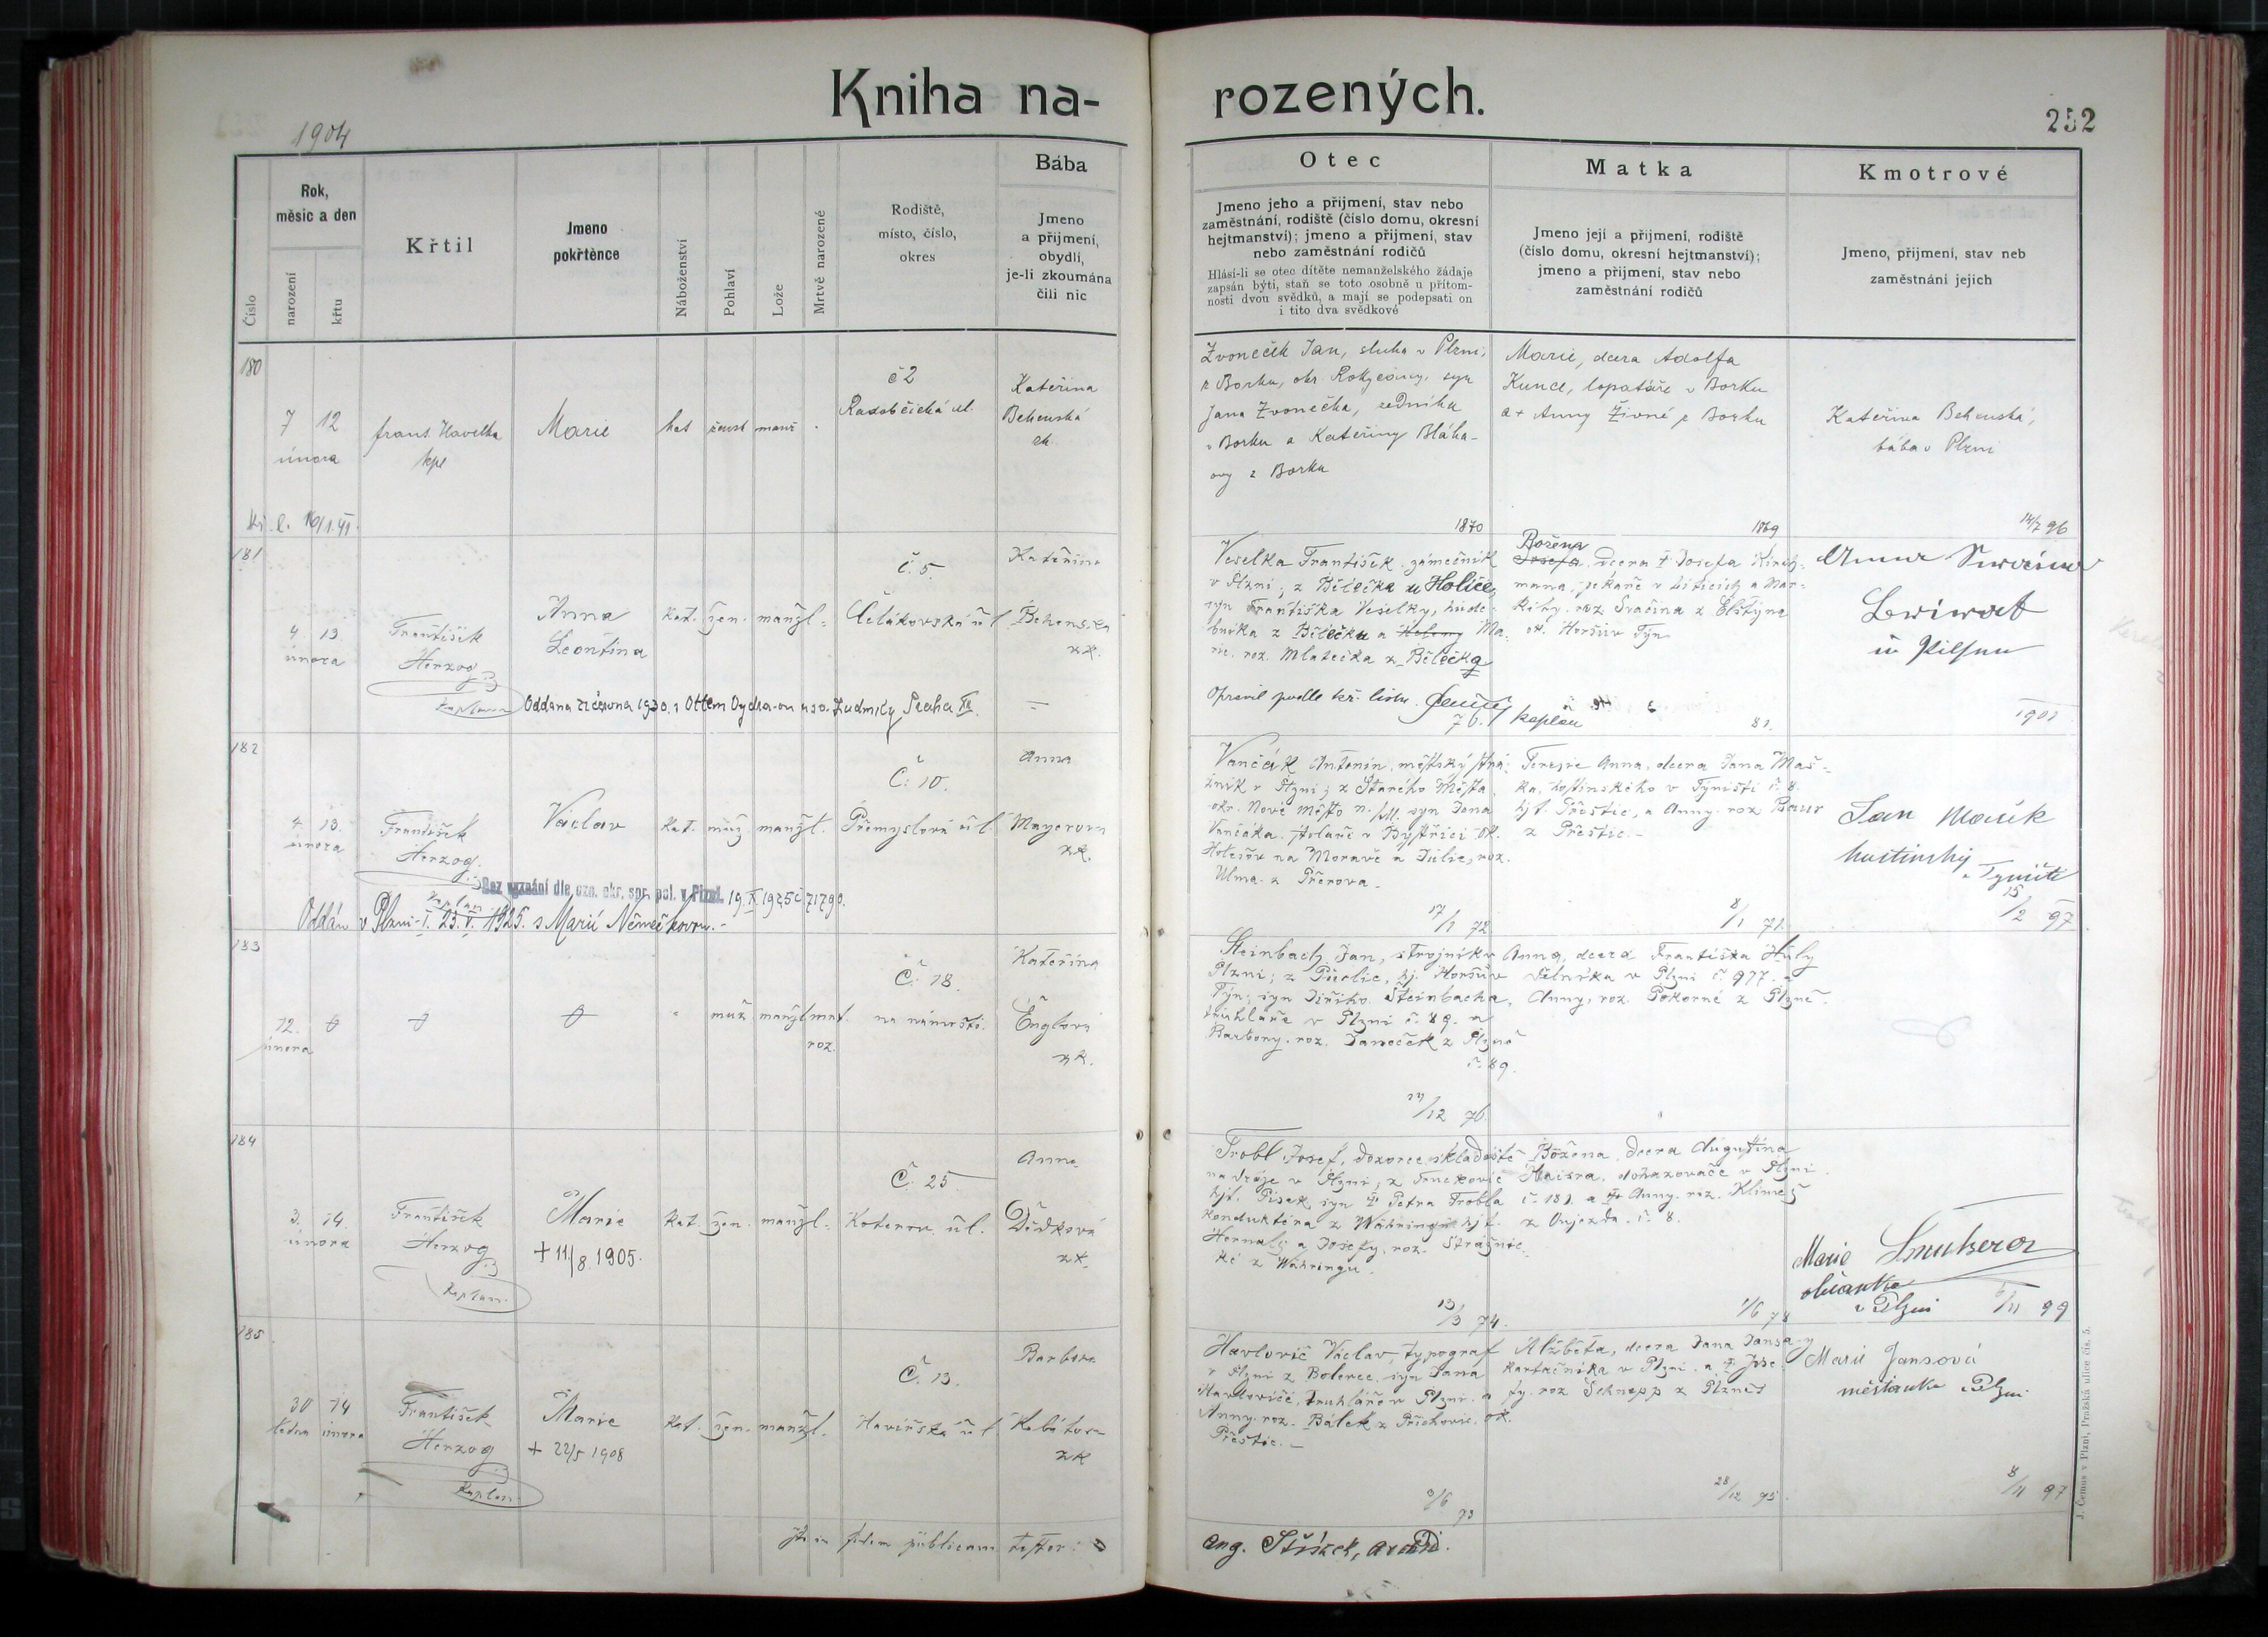 Kniha na-
rozených.
1904
252
Číslo
Rok,
měsíc a den
narození
křtu
Křtil
Jmeno
pokřtěnce
Náboženství
Pohlaví
Lože
Mrtvě narozené
Rodiště,
místo, číslo,
okres
Bába
Jmeno
a přijmení,
obydlí,
je-li zkoumána
čili nic
Otec
Jmeno jeho a přijmení, stav nebo
zaměstnání, rodiště (číslo domu, okresní
hejtmanství); jmeno a přijmení, stav
nebo zaměstnání rodičů
Hlásí-li se otec dítěte nemanželského žádaje
zapsán býti, staň se toto osobně u přítom-
nosti dvou svědků, a mají se podepsati on
i tito dva svědkové
Matka
Jmeno její a přijmení, rodiště
(číslo domu, okresní hejtmanství);
jmeno a přijmení, stav nebo
zaměstnání rodičů
Kmotrové
Jmeno, přijmení, stav neb
zaměstnání jejich
180
7 12
února
frant. Havelka
kpl
Marie
kat
žensk
manž
č 2
Radobčická ul.
Kateřina
Behenská
zk.
Zvoneček Jan, sluha v Plzni,
z Borku, okr. Rokycany, syn
Jana Zvonečka, zedníka
v Borku a Kateřiny Bláho-
ovy z Borku
Marie, dcera Adolfa
Kunce, lopatáře v Borku
a + Anny Živné z Borku
Kateřina Behenská,
bába v Plzni
1870
1869
14/7 96
181
4. 13
února
František
Herzog
kaplan
Anna
Leontina
kat.
žen.
manžl.
č. 5.
Čelakovská ul
Kateřina
Behenská
zk.
Oddána 21 června 1930. s Ottem u sv. Ludmily Praha XII.
Veselka František, zámečník
v Plzni; z Bělečka u Holice,
syn Františka Veselky, hudeb-
níka z Bělečka a Heleny Ma-
rie, roz. Mlatečka z Bělečka
Opravil podle kř. listu
kaplan
76.
Božena
Josefa, dcera † Josefa
mana, pekaře v Liticích a Mar-
kéty, roz. Svačina z Elštýna
ok. Horšův Týn
81.
Anna
in Pilsen
1901
182
4. 13.
února
František
Herzog.
kaplan
Václav
kat.
muž.
manžl.
Č. 10.
Přemyslova ul.
Anna
Mayerova
zk.
Bez vyznání dle ozn. okr. spr. pol. v Plzni. 19. X 1925 č 71790.
Oddán v Plzni-I. 23. V. 1925. s Marií Němečkovou.-
Vančák Antonín, městský strá-
žník v Plzni; z Starého Města,
okr. Nové Město n./M. syn Jana
Vančáka, v Bystřici ok.
Holešov na Moravě a Julie, roz.
Ulma z Přerova.
17/1 72
Terezie Anna, dcera Jana Maš-
ka, hostinského v Týništi č. 8.
hjt. Přeštic, a Anny, roz. Baur
z Přeštic.-
8/1 71.
Jan Mašek
hostinský
v Týništi
15/2 97
183
12.
února
muž.
manžl
mrt.
roz.
Č. 18.
na náměstí.
Kateřina
Englová
zk.
Steinbach Jan, strojník v
Plzni; z Púclic, hj. Horšův
Týn; syn Jiřího Steinbacha,
truhláře v Plzni č. 89. a
Barbory, roz. Janeček z Plzně
č. 89.
/12 76.
Anna, dcera Františka Huly
v Plzni č. 977. a
Anny, roz. Pokorné z Plzně.
184
3. 14.
února
František
Herzog
kaplan.
Marie
+ 11/8. 1905.
kat.
žen.
manžl.
Č. 25
Koterov. ul.
Anna
Dědková
zk.
Trobl Josef, dozorce skladiště
na dráze v Plzni; z
hjt. Písek, syn † Petra Trobla
konduktéra z Währingu hjt.
Hernals a Josefy, roz. Strážnic-
ké z Währingu.
13/3 74.
Božena, dcera Augustina
Haisra, dohazovače v Plzni
č. 181. a † Anny, roz. Klimeš
z Újezda č. 8.
1/6 78
Marie
občanka
v Plzni
6/11 99
185
30 14
ledna února
František
Herzog
kaplan
Marie
+ 22/5 1908
kat.
žen.
manžl.
Č. 13.
Havířská ul
Barbora
Kabátová
zk
Havlovič Václav, typograf
v Plzni z Bolevce, syn Jana
Havloviče, truhláře v Plzni, a
Anny, roz. Bálek z Příchovic, ok.
Přeštic.-
9/6 73
Alžběta, dcera Jana Jansa-y
kartáčníka v Plzni. a † Jose-
fy, roz Schnepp z Plzně
28/12 95.
Marie Jansová
měšťanka v Plzni
8/11 97
In fidem publicam testor:
Ang. Stršek,
J. Čemus v Plzni, Pražská ulice čís. 5.